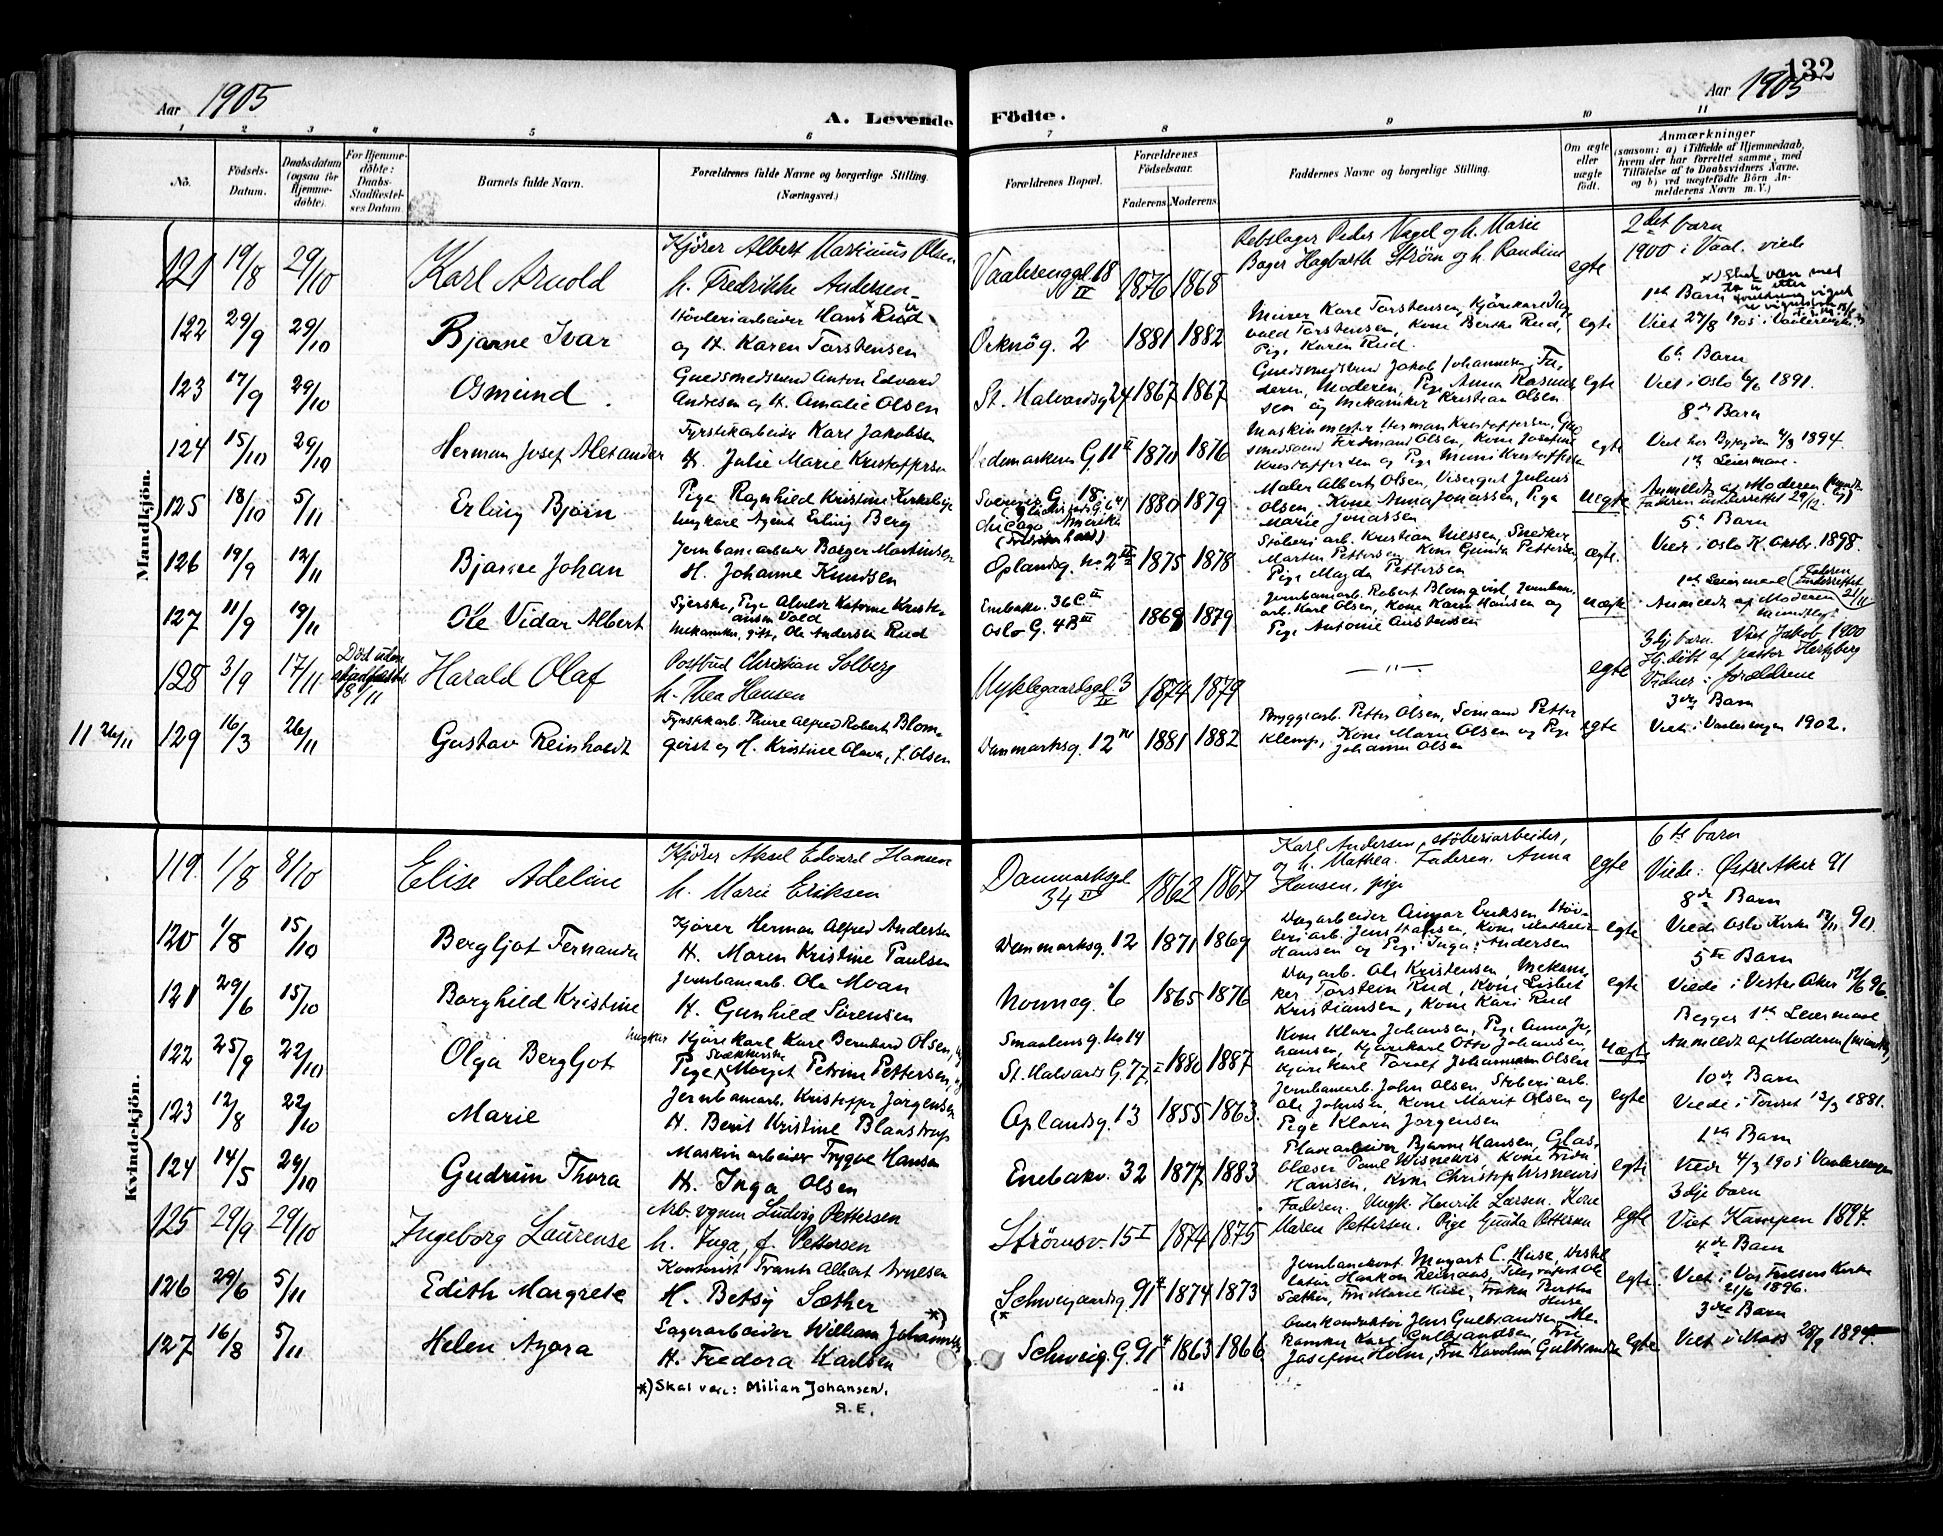 132
Aar 1905
A. Levende Födte.
Aar 1905
1 2 3 4 5 6 7 8 9 10 11
No.
Födsels-
Datum.
Daabsdatum
(ogsaa for
Hjemme-
döbte).
For Hjemme-
döbte:
Daabs-
Stadfæstel-
ses Datum.
Barnets fulde Navn.
Forældrenes fulde Navne og borgerlige Stilling.
(Næringsvei.)
Forældrenes Bopæl.
Forældrenes
Födselsaar.
Faderens. Moderens.
Faddernes Navne og borgerlige Stilling.
Om ægte
eller
uægte
födt.
Anmærkninger
(saasom: a) i Tilfælde af Hjemmedaab,
hvem der har forrettet samme, med
Tilföielse af to Daabsvidners Navne,
og b) ved uægtefödte Börn An-
melderens Navn m. V.)
Mandkjön.
121 19/8 29/10 Karl Arnold
Kjører Albert Martinius Olsen
h. Fredrikke Andersen
Vaalerenggd. 18 IV 1876 1868
Rebslager Peder Nagel og h. Marie
Bager Hagbarth Strøm og h. Randine
egte
2det barn
1900 i Vaal. viede
122 29/9 29/10 Bjarne Ivar
Høvleriarbeider Hans Rud
og H. Karen Torstensen
Orknög. 2 1881 1882
Murer Karl Torstensen, Kjørekarl Ing
vald Torstensen, Kone Berthe Rud,
Pige Karen Rud.
egte
1ste Barn
Viet 27/8 1905 i Vaalerengen
123 17/9 29/10 Osmund.
Guldsmedsvend Anton Edvard
Andresen og H. Amalie Olsen
St. Halvardsg 24 1867 1867
Guldsmedsvend Jakob Johannesen, Fa-
deren, Moderen, Pige Anna Rasmus
sen og Mekaniker Kristian Olsen
egte
6te Barn
Viet i Oslo 1891.
124 15/10 29/10 Herman Josef Alexander
Fyrstikarbeider Karl Jakobsen
H. Julie Marie Kristoffersen
Hedemarkens G. 11 II 1870 1876
Maskinmester Herman Kristoffersen, Gul
smedsvend Ferdinand Olsen, Kone Josefine
Kristoffersen og Pige Mimi Kristoffersen
egte
8de Barn
Viet hos Byfogden 4/8 1894.
125 18/10 5/11 Erling Bjørn
Pige Ragnhild Kristine Kirkebye
Ungkarl Agent Erling Berg
Sverres G. 18
Chicago Amerika
1880 1879
Maler Albert Olsen, Visergut Julius
Olsen, Kone Anna Jonassen, Pige
Marie Jonassen
uegte
1ste Leiermaal.
Anmeldt af Moderen
Faderen underrettet 29/12.
126 19/9 12/11 Bjarne Johan
Jernbanearbeider Borger Martinsen
H. Johanne Knudsen
Oplandsg. No 2 III 1875 1878
Støberiarb. Kristian Nilssen, Snedker
Morten Pettersen, Kone Gunda Pettersen,
Pige Magda Pettersen
ægte.
5te Barn
Viet i Oslo K. Oktbr. 1898.
127 11/9 19/11 Ole Vidar Albert
Syerske, Pige Alvilde Katrine Kristi-
ansen Vold
Mekaniker, gift, Ole Andersen Rud
Enebakv. 36 C II
Oslo G. 4B III
1869 1879
Jernbanearb. Robert Blomqvist, Jernban-
arb. Karl Olsen, Kone Karen Hansen og
Pige Antonie Gustensen
uægte
1ste Leiermaal (Faderen underrettet 21/11
Anmeldt af Moderen mundtlig)
128 3/9 17/11 Død uden
stadfæstelse
18/11
Harald Olaf
Postbud Christian Solberg
h. Thea Hansen
Myklegaardsgd. 3 IV 1874 1879
— " —
egte
3dje barn. Viet Jakob 1900
Hj.døbt af pastor Hertzberg
Vidner: forældrene
11 26/11 129 16/3 26/11 Gustav Reinholdt
Fyrstikarb. Thure Alfred Robert Blom-
qvist og H. Kristine Olava, f. Olsen
Danmarksg. 12 IV 1881 1882
Bryggearb. Petter Olsen, Sømand Petter
Klemp, Kone Marie Olsen og Pige
Johanne Olsen
egte
3die Barn
Viet i Vaalerengen 1902.
Kvindekjön.
119. 1/8 8/10 Elise Adeline
Kjører Aksel Edvard Hansen
h. Marie Eriksen
Danmarksgd 34 IV 1862 1867
Karl Andersen, støberiarbeider,
og h. Mathea. Faderen. Anna
Hansen, pige
egte
6te barn
Viede: Østre Aker 91
120 1/8 15/10 Bergljot Fernanda
Kjører Herman Alfred Andersen
H. Maren Kristine Paulsen
Danmarksg. 12 1871 1869
Dagarbeider Gunnar Eriksen, Høv-
leriarb. Jens Hansen, Kone Mathea
Hansen og Pige Inga Andersen
egte
8de Barn
Viede Oslo Kirke 12/11 90.
121 29/6 15/10 Borghild Kristine
Jernbanearb. Ole Moan
H. Gunhild Sørensen
Nonneg. 6 1865 1876
Dagarb. Ole Kristensen, Mekani-
ker Torstein Rud, Kone Lisbet
Kristiansen, Kone Kari Rud
egte
5te Barn
Viede i Vestre Aker 12/6 96.
122 25/9 22/10 Olga Bergljot
Ungkar Kjørekarl Karl Bernhard Olsen, og
Pige Margit Petrine Pettersen,
Smaalensg. No 14
St. Halvards G. 77 I 1880 1887
Kone Klara Johansen, Pige Anna Jo-
hansen, Kjørekarl Otto Johansen
Kjørekarl Torolf Johannesen Olsen
uægte
Begges 1ste Leiermaal
Anmeldt af Moderen (mundtlig)
123 12/8 22/10 Marie
Jernbanearb. Kristoffer Jørgensen
H. Berit Kristine Blaastrup
Oplandsg. 13 1855 1863.
Jernbanearb. John Olsen, Støberiarb.
Ole Johnsen, Kone Marit Olsen og
Pige Klara Jørgensen
egte
10de Barn
Viede i Tønset 12/3 1881.
124 14/5 29/10 Gudrun Thora
Maskinarbeider Trygve Hansen
H. Inga Olsen
Enebakv. 32 1877 1883
Platearbeider Bjarne Hansen, Glas-
blæser Paul Wisnewis, Kone Frida
Hansen, Kone Christofa Wisnewis
egte
1ste Barn
Viede 4/3 1905 i Vaalerengen
125 29/9 29/10 Ingeborg Laurense
Arb. vognm Ludvig Pettersen
h. Inga, f. Pettersen
Strømsv. 15 I 1874 1875
Faderen. Ungk. Henrik Larsen. Kone
Maren Pettersen. Pige Gunda Pettersen
egte
3dje barn
Viet Kampen 1897.
126 29/6 5/11 Edith Margrete
Kontorist Frantz Albert
H. Betsy Sæther
Schweigaardsg. 91 4 1874 1873
egte
4de Barn
Viet i Vor Frelsers Kirke
21/6 1896.
127 16/8 5/11 Helen Agora
Lagerarbeider William Johannesen *)
H. Fredora Karlsen
Schweig. G. 91 4 1863 1866
Overkonduktør Jens Gulbrandsen, Me-
kaniker Karl Gulbrandsen, Frue
Josefine Holm, Fru Karoline Gulbrandsen
egte
3die Barn
Viet i Moss 28/9 1894.
*) Skal være: Milian Johansen.
R.E.